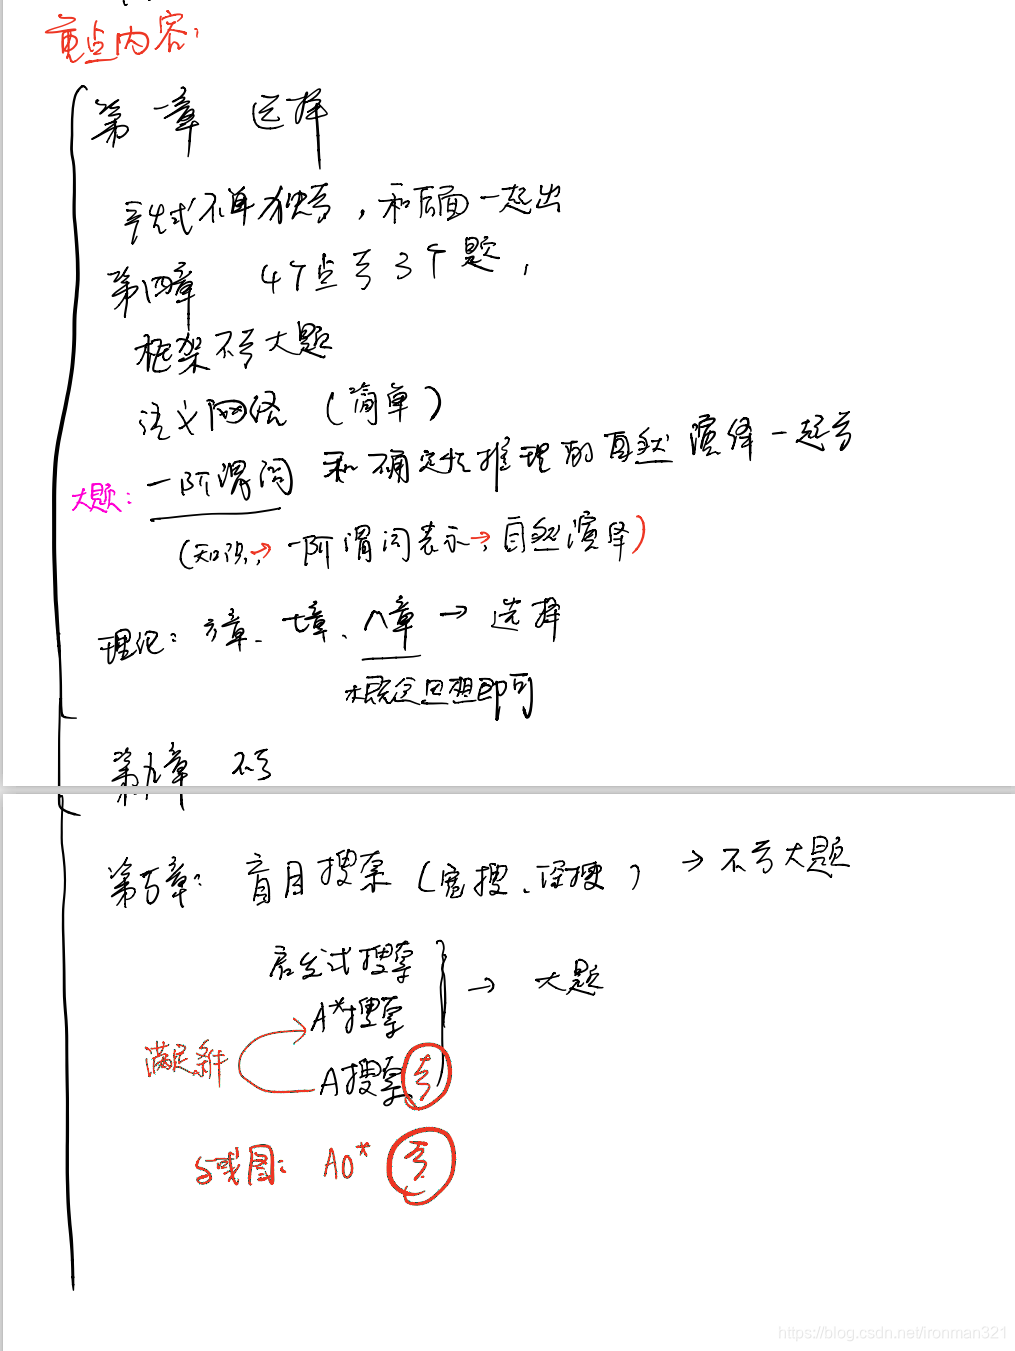 重点内容:
第一章 选择
产生式不单独考，和后面一起出
第四章 4个点考3个题，
框架不考大题
语义网络（简单）
大题: 一阶谓词 和确定性推理的自然演绎一起考
（知识→一阶谓词表示→自然演绎）
理论: 六章、七章、八章→选择
概念回想即可
第九章 不考
第五章: 盲目搜索（宽搜、深搜）→不考大题
启发式搜索
A*搜索 → 大题
满足条件
A搜索 考
与或图: AO* 考
https://blog.csdn.net/ironman321